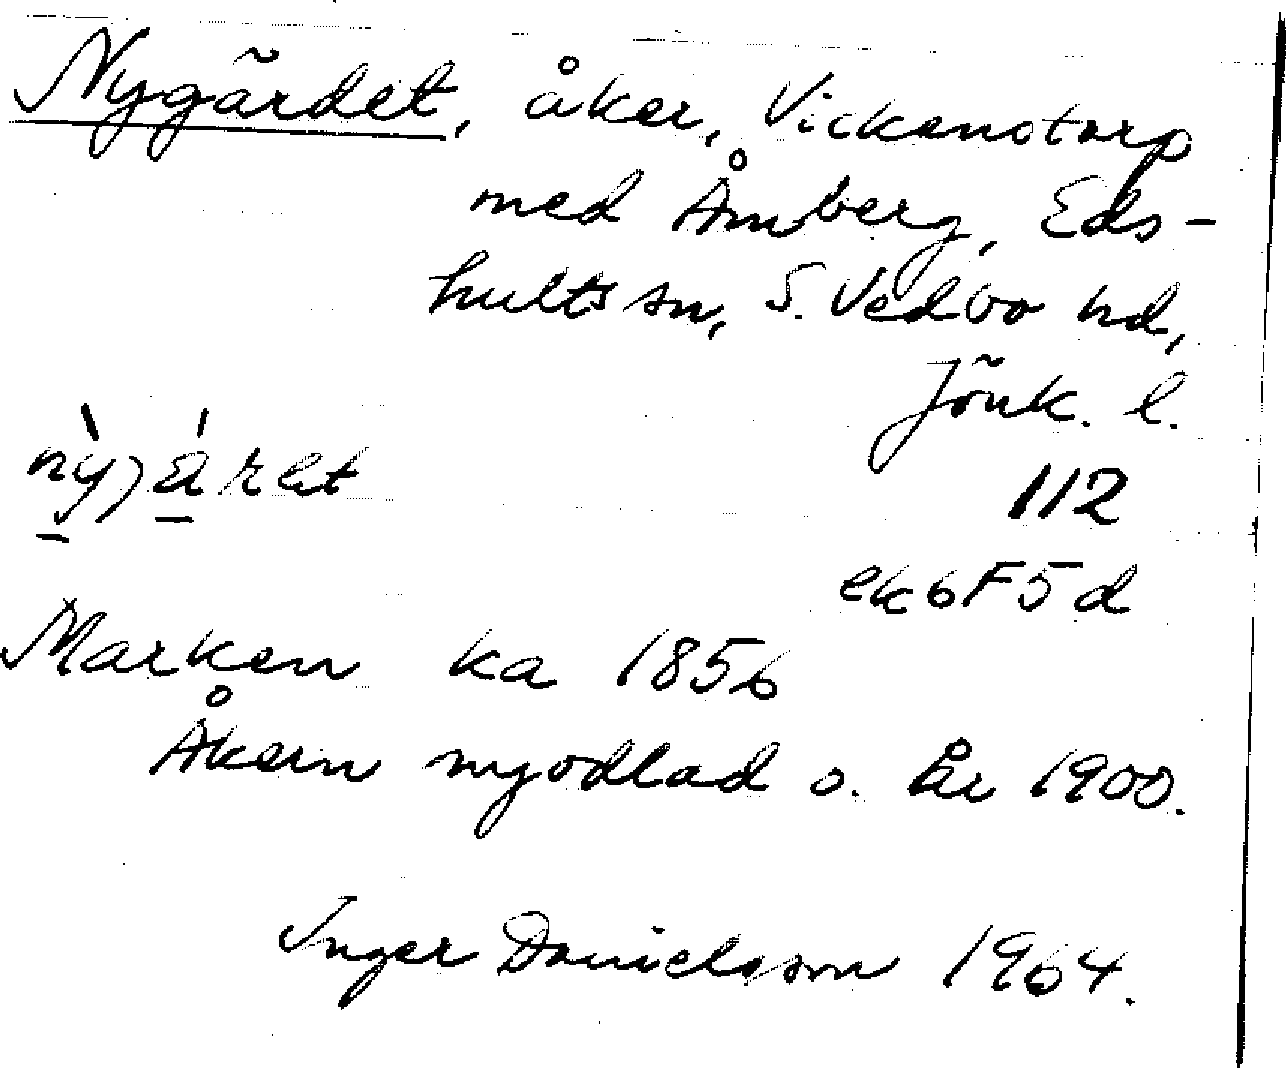 Nygärdet, åker, Vickenstorp
med Åmberg, Eds-
hults sn, S. Vedbo hd,
Jönk. l.
112
ek 6F5d
Marken ka 1856
Åkern nyodlad o. år 1900.
Inger Danielsson 1964.